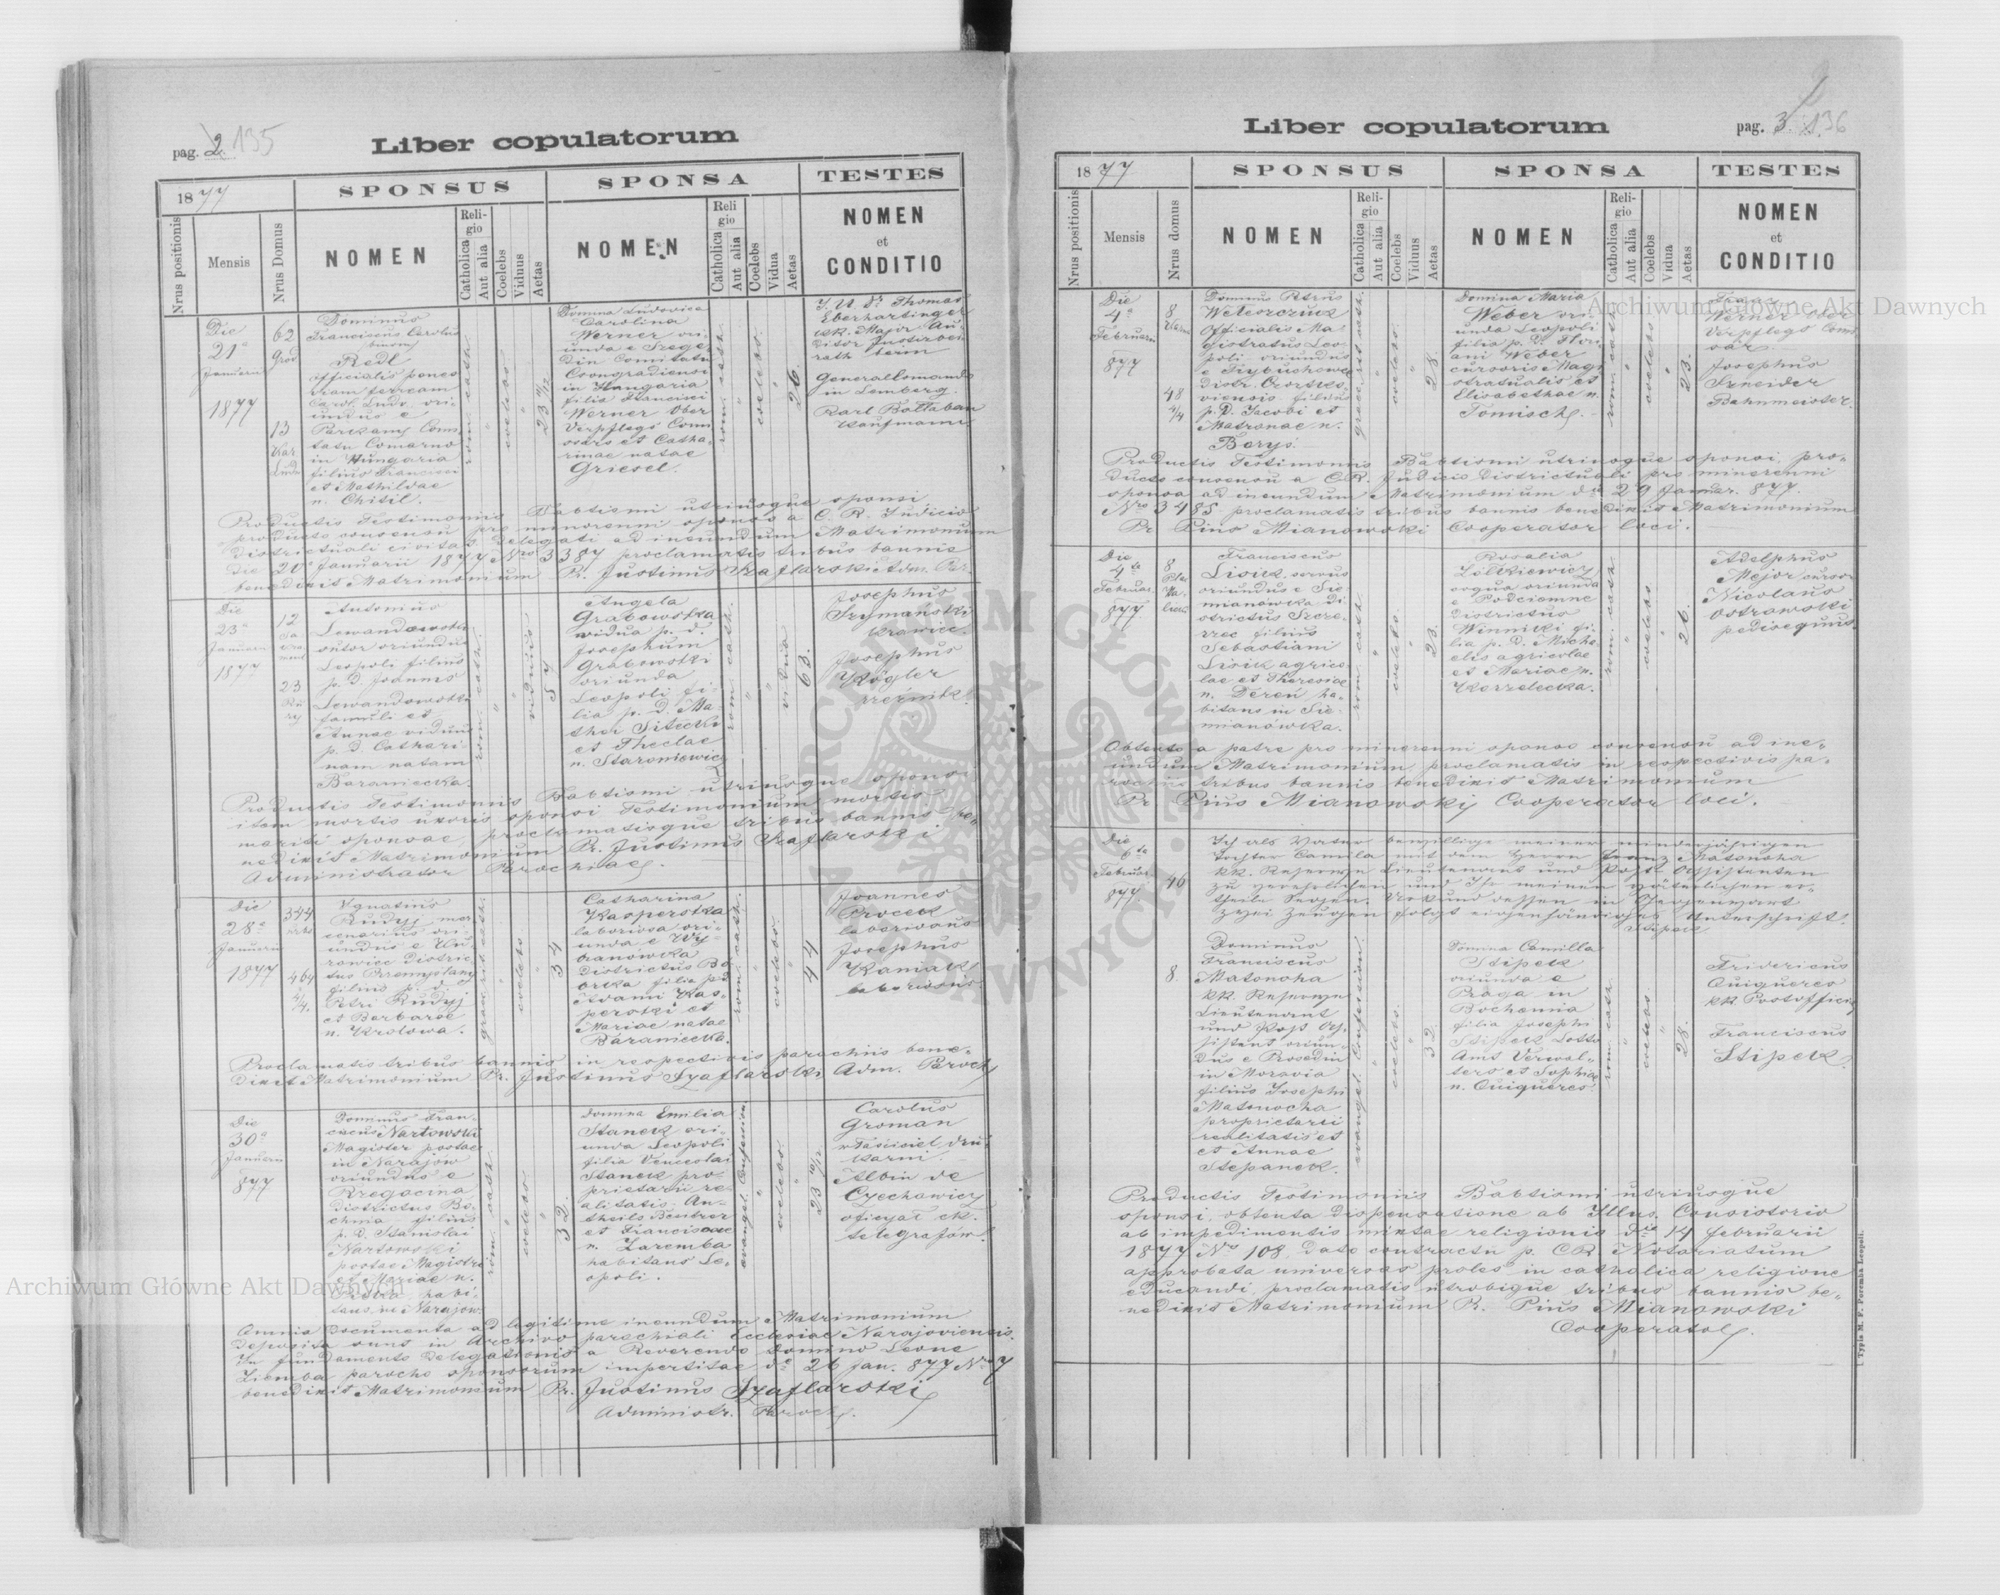 pag. 2. 135
Liber copulatorum
1877
SPONSUS
SPONSA
TESTES
Nrus positionis
Mensis
Nrus Domus
NOMEN
Religio
Catholica
Aut alia
Coelebs
Viduus
Aetas
NOMEN
Religio
Catholica
Aut alia
Coelebs
Vidua
Aetas
NOMEN
et
CONDITIO
Die
21a
Januarii
1877
62
Grod
13
Kar
Ludw
Dominus
Franciscus Carolus
Redl
officialis penes
viam ferream
Carol. Ludov. ori-
undus e
Parkany Comi-
tatu Comarno
in Hungaria
filius Francisci
et Mathildae
n. Chitil.
rom. cath.
coelebs
23
Domina Ludovica
Carolina
Werner ori-
unda e Szege-
din Comitatu
Csongradiensi
in Hungaria
filia Francisci
Werner Ober
Verpflegs Com
ssärs et Catha-
rinae natae
Griesel.
rom. cath.
coelebs
26.
J. U. Dr Thomas
Eberhartinger
k.k. Major Au-
ditor Justizbei
rath beim
Generallomando
in Lemberg.
Karl Kottaban
Kaufmann.
Productis Testimoniis Babtismi utriusque sponsi,
producto consensu pro minorenni sponso a C. R. Judicio
Districtuali civitat. Delegati ad ineundum Matrimonium
die 20a Januarii 1877 Nro 3387 proclamatis tribus bannis
benedixit Matrimonium Pr. Justinus Szaflarski Adm. Par.
Die
23a
Januarii
1877
12
23
Antonius
Lewandowski
sutor oriundus
Leopoli filius
p. d. Joannis
Lewandowski
famuli et
Annae viduus
p. d. Cathari-
nam natam
Baraniecka.
rom. cath.
viduus
54
Angela
Grabowska
vidua p. d.
Josephum
Grabowski
oriunda
Leopoli fi-
lia p. d. Ma-
thei Sitecki
et Theclae
n. Staroniewicz
rom. cath.
vidua
63.
Josephus
Szymański
krawiec.
Josephus
Kögler
rzeźnik.
Productis Testimoniis Babtismi utriusque sponsi
item mortis uxoris sponsi Testimonium mortis
mariti sponsae, proclamatisque tribus bannis be-
nedixit Matrimonium Pr. Justinus Szaflarski
Administrator Parochiae.
Die
28a
Januarii
1877
344
464
4/4.
Ignatius
Rudyj mer-
cenarius ori-
undus e Un-
rowiec Distric-
tus Przemyslany
filius p. d.
Petri Rudyj
et Barbarae
n. Krolowa.
coelebs
34
Catharina
Kasperska
laboriosa ori-
unda e Wy-
branowka
Districtus Bo
brka filia p. d.
Adami Kas-
perski et
Mariae natae
Baraniecka.
rom. cath.
coelebs
44
Joannes
Crocek
laboriosus
Josephus
Kaniak
laboriosus
Proclamatis tribus bannis in respectivis parochiis bene-
dixit Matrimonium Pr. Justinus Szaflarski Adm. Paroch.
Die
30a
Januarii
877
Dominus Fran-
ciscus Nartowski
Magister postae
in Narajow
oriundus e
Rzegocina
Districtus Bo-
chnia filius
p. d. Stanislai
Nartowski
postae Magistri
et Mariae n.
habi-
tans in Narajow.
rom. cath.
coelebs
32.
Domina Emilia
Stanek ori-
unda Leopoli
filia Venceslai
Stanek pro-
prietarii re-
alitatis An-
theils Besitzer
et Franciscae
n. Zaremba
habitans Le-
opoli.
evangel. Confession.
coelebs
23 10/12
Carolus
Groman
właściciel dru-
karni.
Albin de
Czechowicz
oficyał ck.
telegrafów.
Omnia Documenta ad legitime ineundum Matrimonium
deposita sunt in Archivo parochiali ecclesiae Narajoviensis.
In fundamento Delegationis a Reverendo Domino Leone
Ziemba parocho sponsorum impertitae dto 26 Jan. 877 Nro 7
benedixit Matrimonium Pr. Justinus Szaflarski
Administr. Paroch.
pag. 3. 136
Liber copulatorum
1877
SPONSUS
SPONSA
TESTES
Nrus positionis
Mensis
Nrus domus
NOMEN
Religio
Catholica
Aut alia
Coelebs
Viduus
Aetas
NOMEN
Religio
Catholica
Aut alia
Coelebs
Vidua
Aetas
NOMEN
et
CONDITIO
Die
4a
Februarii
877
8
48
4/4
Dominus Petrus
Weteorczuk
Officialis Ma-
gistratus Leo-
poli oriundus
e Trybuchowce
Distr. Czortko-
viensis filius
p. d. Jacobi et
Matronae n.
Borys.
coelebs
28
Domina Maria
Weber ori-
unda Leopoli
filia p. d. Flori-
ani Weber
cursoris Magi
stratualis et
Elisabethae n.
Tomisch.
rom. cath.
coelebs
23.
Franz
Werner Ober
Verpflegs Comis
sär.
Josephus
Schneider
Bahnmeister.
Productis Testimoniis Babtismi utriusque sponsi, pro-
ducto consensu a C.R. Judicio Districtuali pro minorenni
sponsa ad ineundum Matrimonium dto 29 Januar. 877.
Nro 3485. proclamatis tribus bannis benedixit Matrimonium
Pr. Pius Mianowski Cooperator loci.
Die
4ta
Februar.
877
8
Franciscus
Lisik servus
oriundus e Sie-
mianowka Di-
strictus Szcze-
rzec filius
Sebastiani
Lisik agrico-
lae et Theresiae
n. Dereń ha-
bitans in Sie-
mianówka.
rom. cath.
coelebs
23.
Rosalia
Ziółkiewicz
coqua oriunda
e Podciemne
Districtus
Winniki fi-
lia p. d. Micha-
elis agricolae
et Mariae n.
Korzelecka.
rom. cath.
coelebs
26.
Adelphus
Mejor cursor
Nicolaus
Ostrowski
pedisequus.
Obtento a patre pro minorenni sponso consensu ad ine-
undum Matrimonium, proclamatis in respectivis pa-
rochiis tribus bannis benedixit Matrimonium
Pr. Pius Mianowski Cooperator loci.
Die
6ta
Februar.
877
46
Ich als Vater bewillige meiner minderjährigen
Tochter Camila mit dem Herrn Franz Matonoha
kk. Reserve Lieutenant und Post Assistenten
zu verehelichen und Ihr meinen väterlichen er-
theile Segen. Urkund dessen in Gegenwart
zwei Zeugen folgt eigenhändiges Unterschrift.
Stipek
8.
Dominus
Franciscus
Matonoha
kk. Reserve
Lieutenant
und Post As-
sistent oriun-
dus e Prosedin
in Moravia
filius Josephi
Matonocha
proprietarii
realitatis et
et Annae
Stepanek.
evangel. Confession.
coelebs.
32.
Domina Camilla
Stipek
oriunda e
Praga in
Bochemia
filia Josephi
Stipek Lotto
Amt Verwal-
ters et Sophiae
n. Quiqueres.
rom. cath.
coelebs.
28.
Fridericus
Quiqueres
kk Postofficier
Franciscus
Stipek.
Productis Testimoniis Babtismi utriusque
sponsi, obtenta dispensatione ab Illus. Consistorio
ab impedimentis mixtae religionis dto 14 februarii
1877 Nro 108, dato contractu p. C.R. Notariatum
approbata universas proles in catholica religione
educandi, proclamatis utrobique tribus bannis be-
nedixit Matrimonium Pr. Pius Mianowski
Cooperator.
Typis M. F. Poremba Leopoli.
Archiwum Główne Akt Dawnych
Archiwum Główne Akt Dawnych
ARCHIWUM GŁÓWNE AKT DAWNYCH